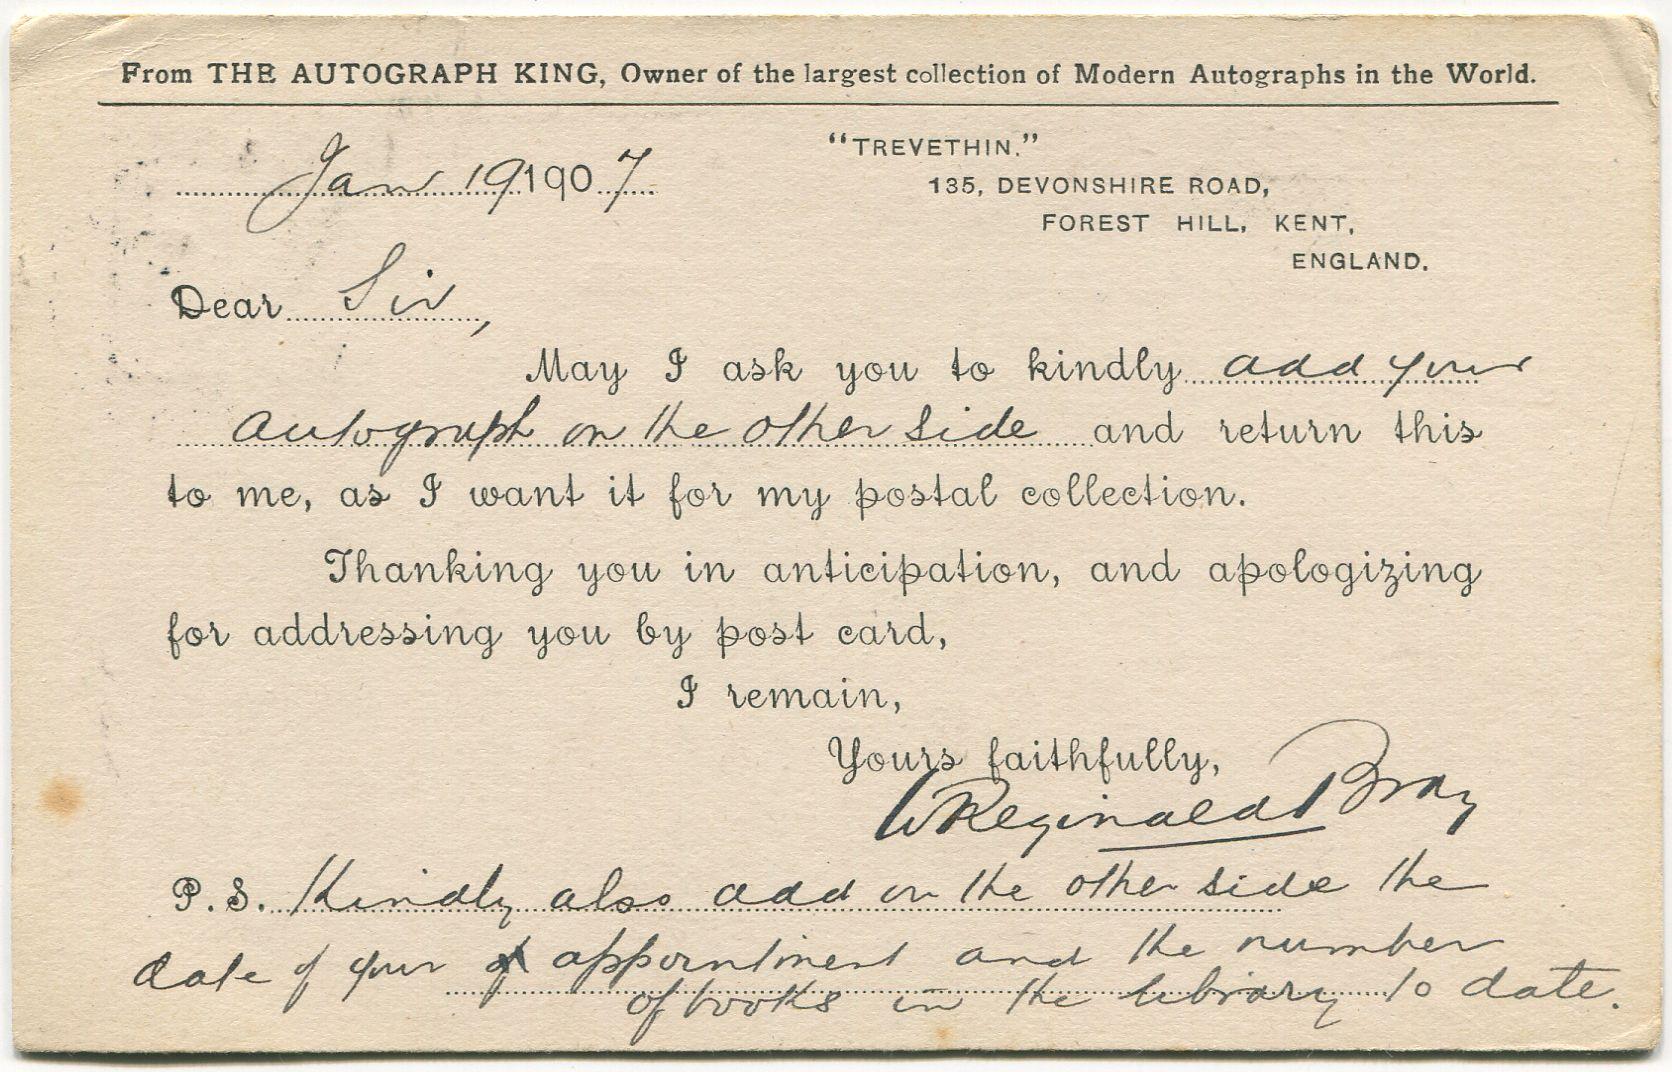 From THE AUTOGRAPH KING, Owner of the largest collection of Modern Autographs in the World.
"TREVETHIN."
135, DEVONSHIRE ROAD,
FOREST HILL, KENT,
ENGLAND.
Jan 19 1907
Dear Sir,
May I ask you to kindly add your
autograph on the other side and return this
to me, as I want it for my postal collection.
Thanking you in anticipation, and apologizing
for addressing you by post card,
I remain,
Yours faithfully,
W Reginald Bray
P.S. Kindly also add on the other side the
date of your appointment and the number
of books in the library to date.